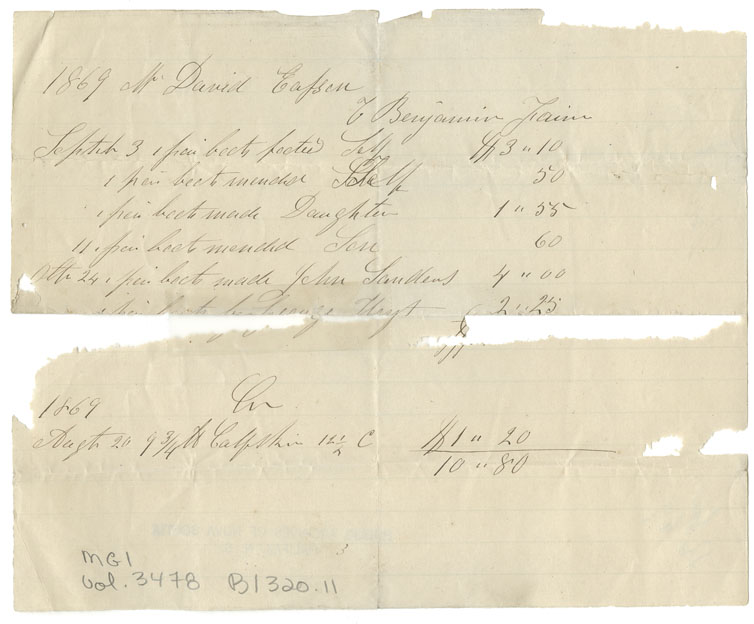 1869 Mr David Eafson
T Benjamin Fairn
Septeb 3 1 pair boots footed Self $3 " 10
1 pair boots mended Self 50
1 pair boots made Daughter 1 " 55
11 1 pair boots mended Son 60
24 1 pair boots made John Sanders 4 " 00
1 pair boots George Hoyt 2 " 25
1869 Cr
Augt 20 9 3/4 lb Calfskin 12 1/2 C $1 " 20
10 " 80
MG1
Vol. 3478 B1320.11